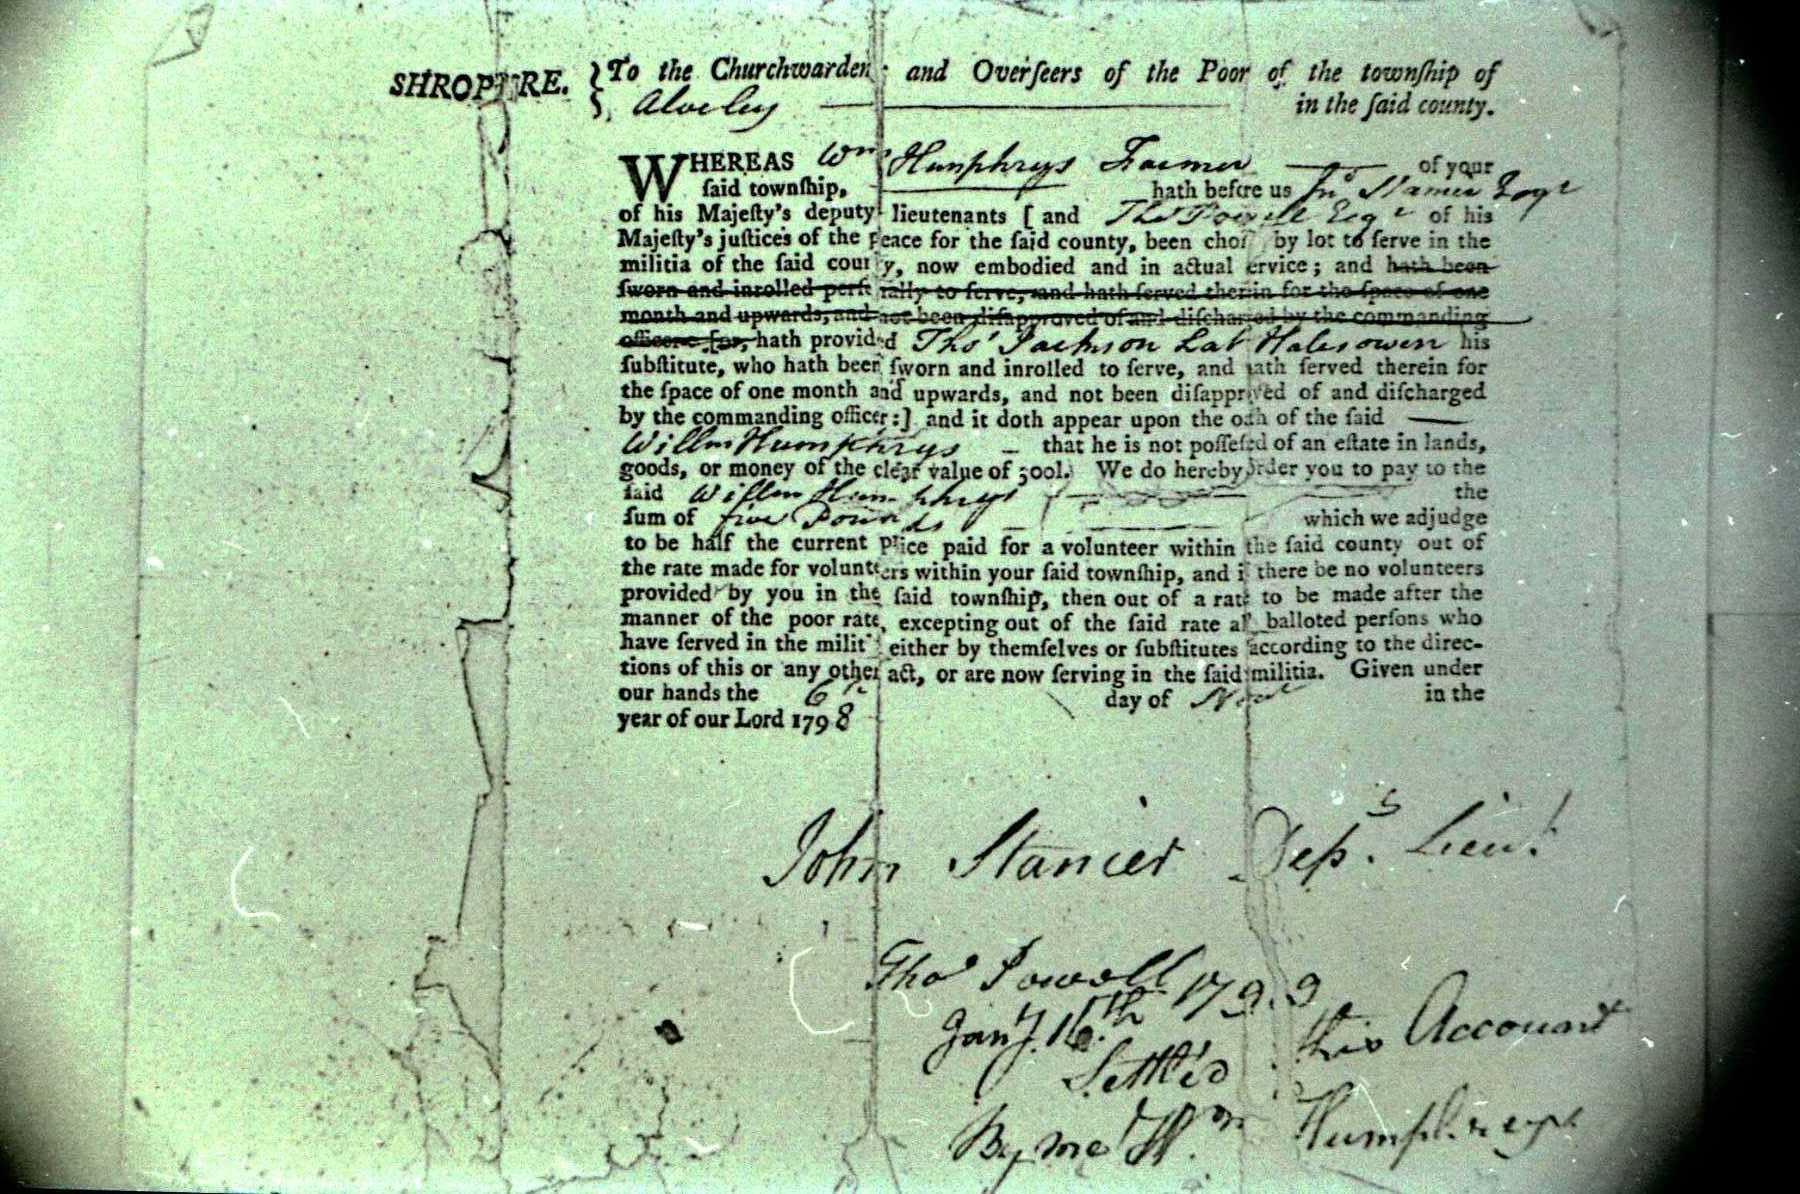 SHROPSHIRE. } To the Churchwardens and Overſeers of the Poor of the townſhip of
Alveley in the ſaid county.
WHEREAS Wm Humphrys Farmer of your
ſaid townſhip, hath before us Jno Stanier Esqr
of his Majeſty's deputy lieutenants [ and Thos Powell Esqr of his
Majeſty's juſtices of the peace for the ſaid county, been choſen by lot to ſerve in the
militia of the ſaid county, now embodied and in actual ſervice; and hath been
ſworn and inrolled perſonally to ſerve, and hath ſerved therein for the ſpace of one
month and upwards, and not been diſapproved of and diſcharged by the commanding
officer: [or, hath provided Thos Jackson Lab Halesowen his
ſubſtitute, who hath been ſworn and inrolled to ſerve, and hath ſerved therein for
the ſpace of one month and upwards, and not been diſapproved of and diſcharged
by the commanding officer:] and it doth appear upon the oath of the ſaid
Willm Humphrys that he is not poſſeſſed of an eſtate in lands,
goods, or money of the clear value of 500l. We do hereby order you to pay to the
ſaid Willm Humphrys the
ſum of five Pounds which we adjudge
to be half the current price paid for a volunteer within the ſaid county out of
the rate made for volunteers within your ſaid townſhip, and if there be no volunteers
provided by you in the ſaid townſhip, then out of a rate to be made after the
manner of the poor rate, excepting out of the ſaid rate all balloted perſons who
have ſerved in the militia either by themſelves or ſubſtitutes according to the direc-
tions of this or any other act, or are now ſerving in the ſaid militia. Given under
our hands the 6th day of Novr in the
year of our Lord 1798
John Stanier Depy. Lieut.
Thos Powell
Jany. 16th 1799
Settl'd this Account
By me Wm Humphreys